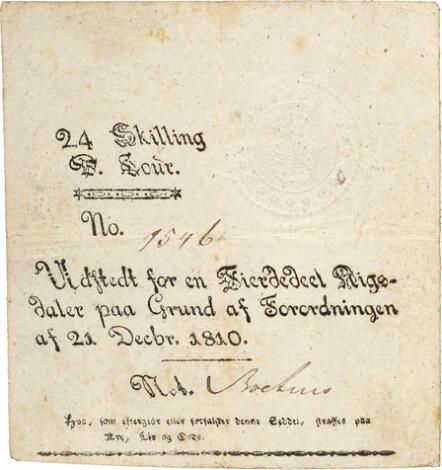 24 Skilling
D. Cour.
No. 1546
Udstedt for en Fierdedeel Rigs-
daler paa Grund af Forordningen
af 21 Decbr. 1810.
N.t.
Hvo, som eftergiør eller forfalsker denne Seddel, straffes paa
Ære, Liv og Gods.